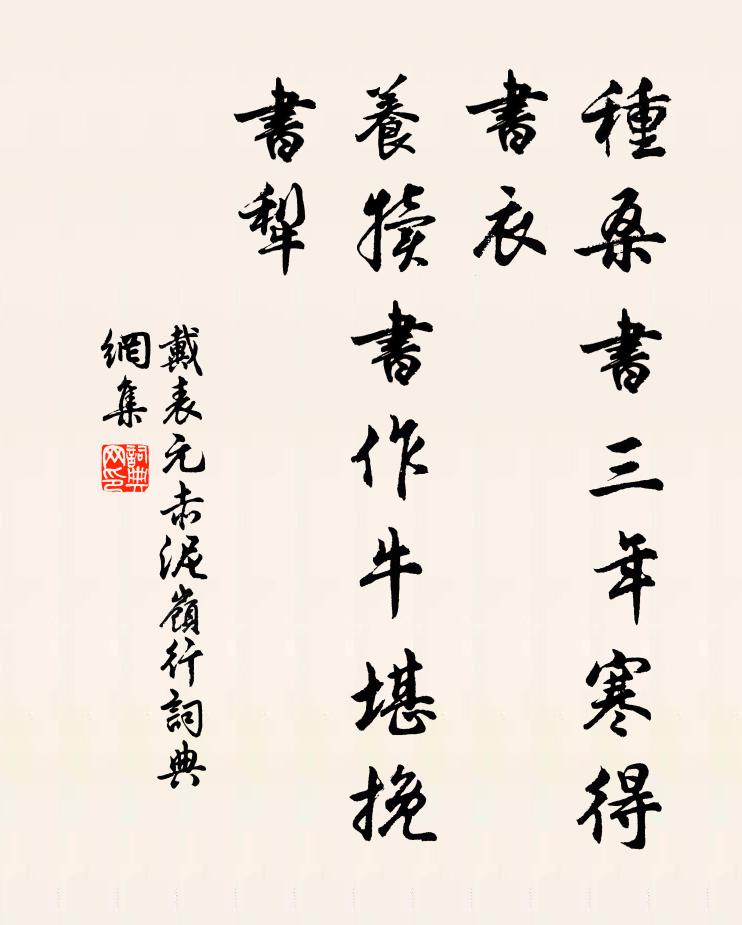 種桑書三年寒得
書衣
養犢書作牛堪挽
書犁
戴表元赤泥嶺行詞典
網集
詞典
网印